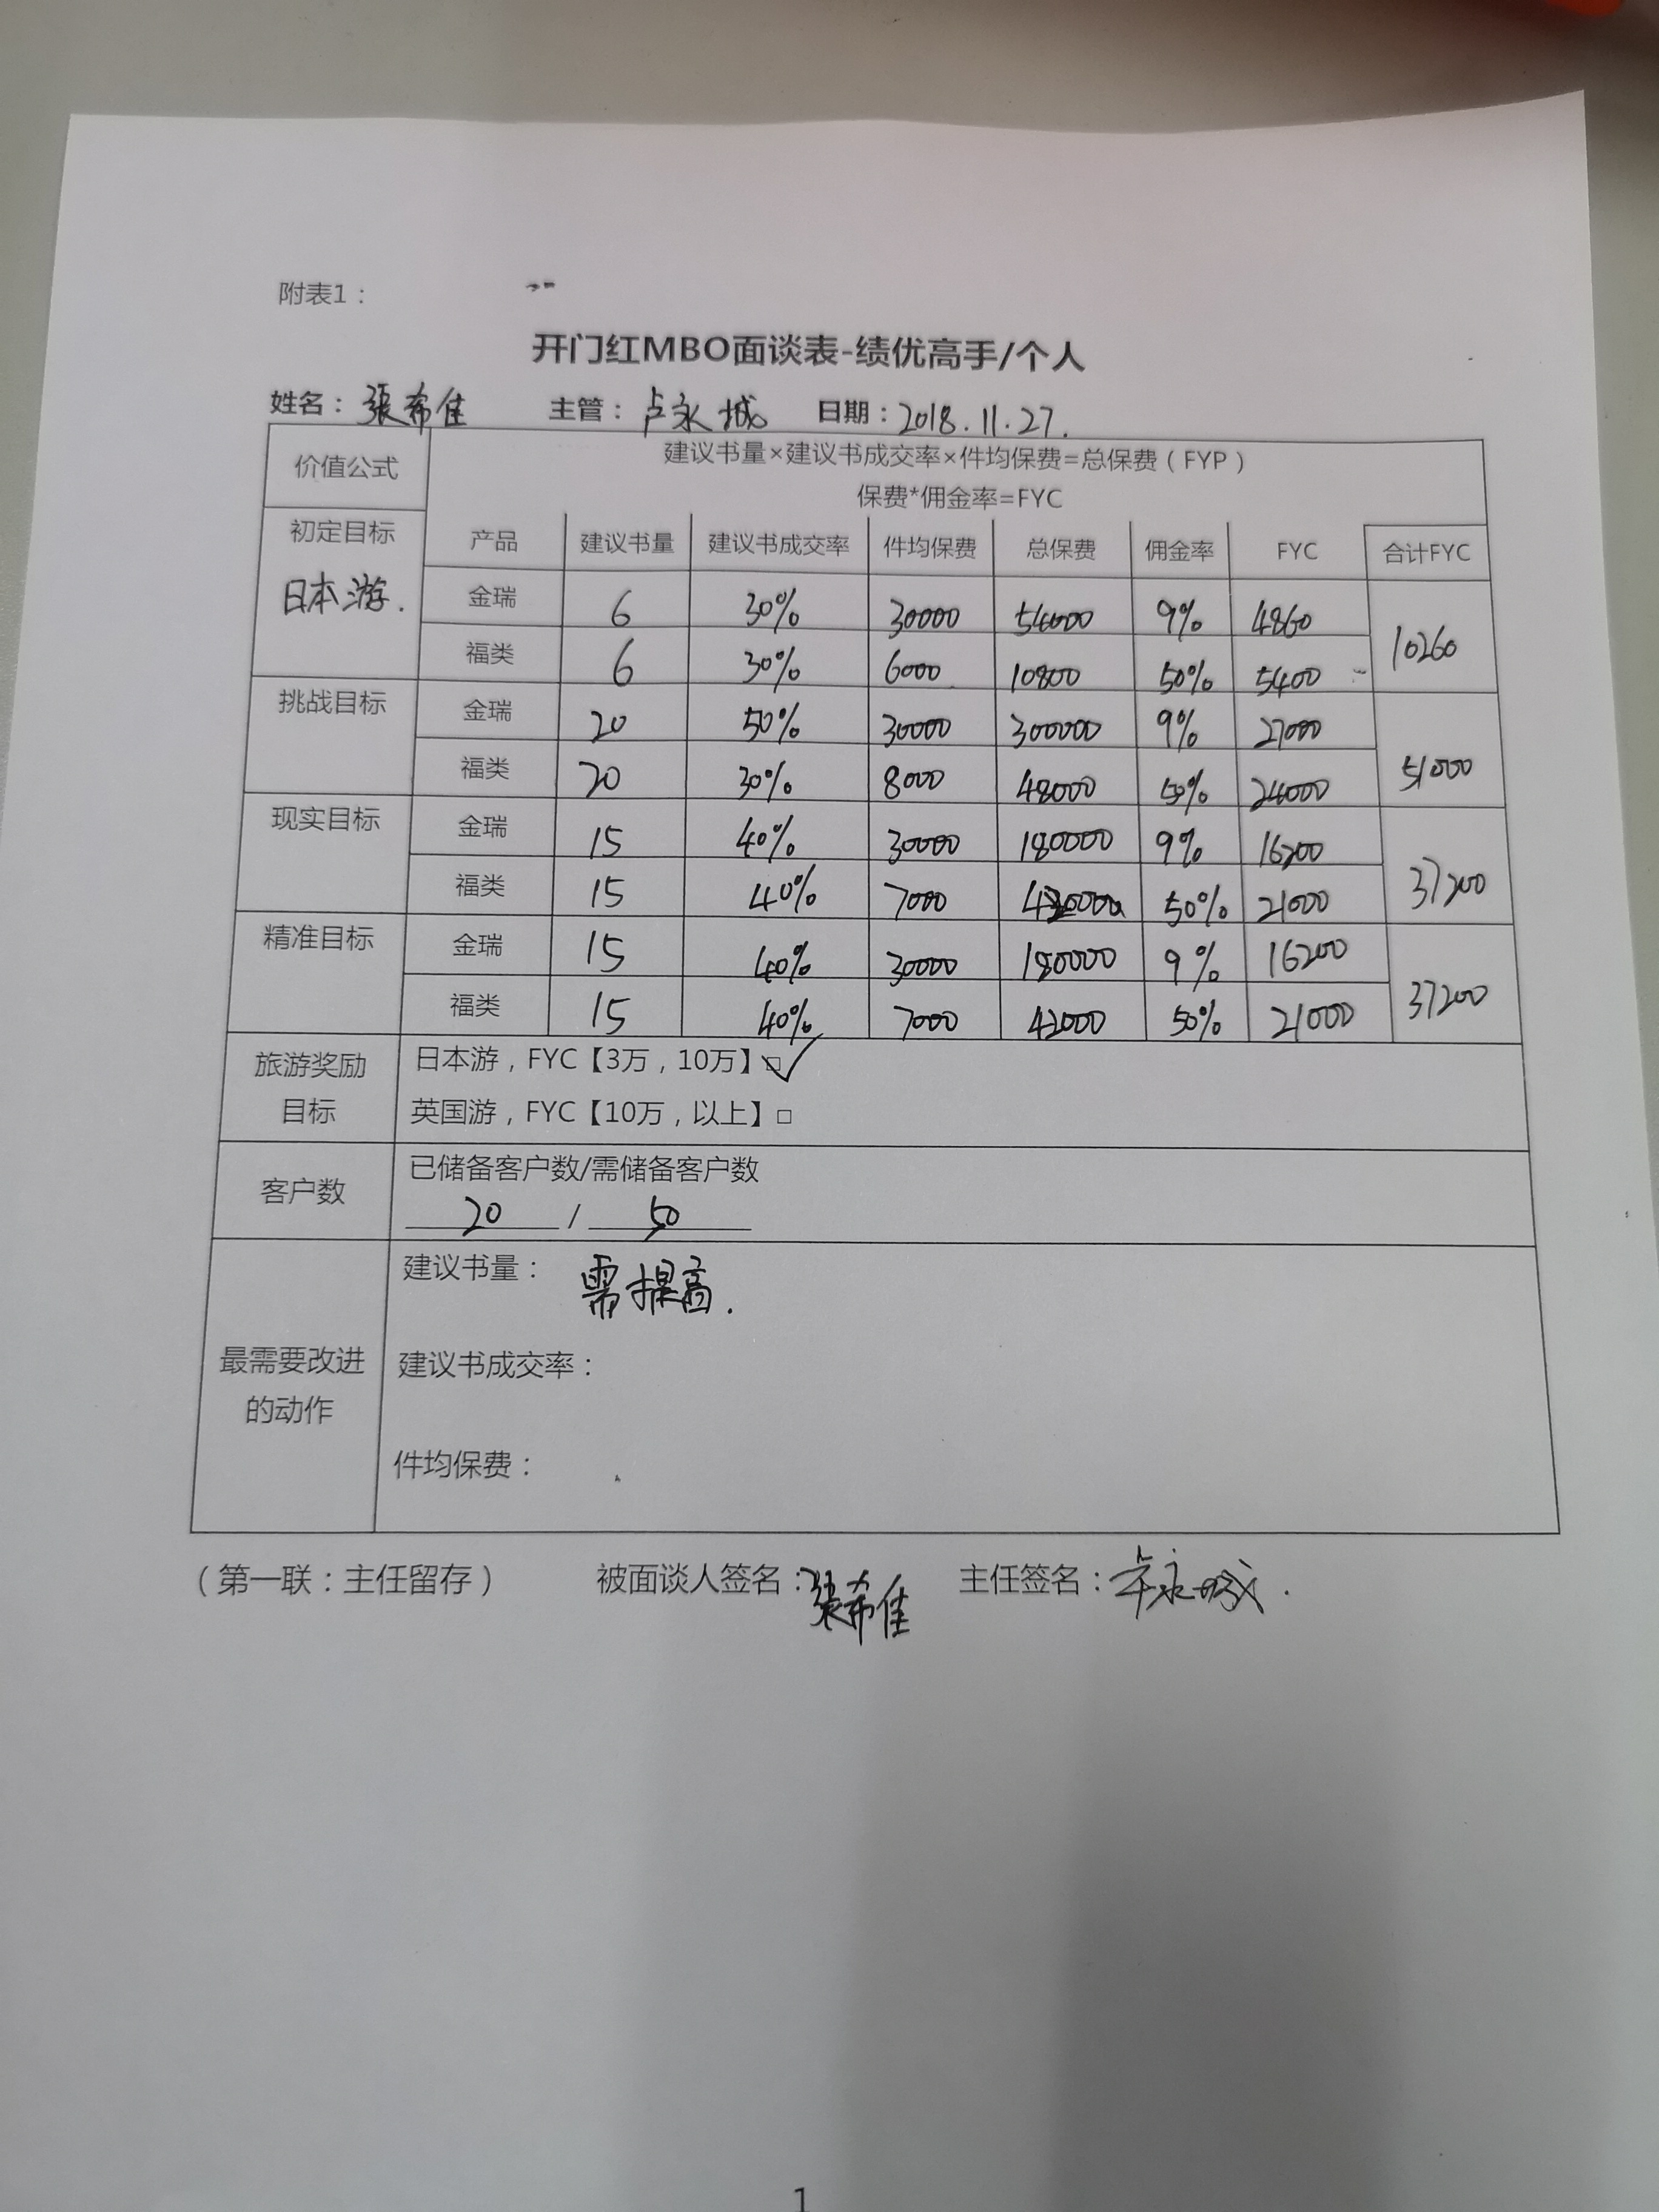 附表1：
开门红MBO面谈表-绩优高手/个人
姓名：張希佳 主管：卢永城 日期：2018.11.27.
价值公式 建议书量×建议书成交率×件均保费=总保费（FYP）
保费*佣金率=FYC
初定目标 产品 建议书量 建议书成交率 件均保费 总保费 佣金率 FYC 合计FYC
日本游. 金瑞 6 30% 30000 54000 9% 4860 10260
福类 6 30% 6000 10800 50% 5400
挑战目标 金瑞 20 50% 30000 300000 9% 27000 51000
福类 20 30% 8000 48000 50% 24000
现实目标 金瑞 15 40% 30000 180000 9% 16200 37200
福类 15 40% 7000 50% 21000
精准目标 金瑞 15 40% 30000 180000 9% 16200 37200
福类 15 40% 7000 42000 50% 21000
旅游奖励目标 日本游，FYC【3万，10万】☑
英国游，FYC【10万，以上】□
客户数 已储备客户数/需储备客户数
20 / 50
最需要改进的动作 建议书量：需提高.
建议书成交率：
件均保费：
（第一联：主任留存） 被面谈人签名：張希佳 主任签名：卢永城.
1